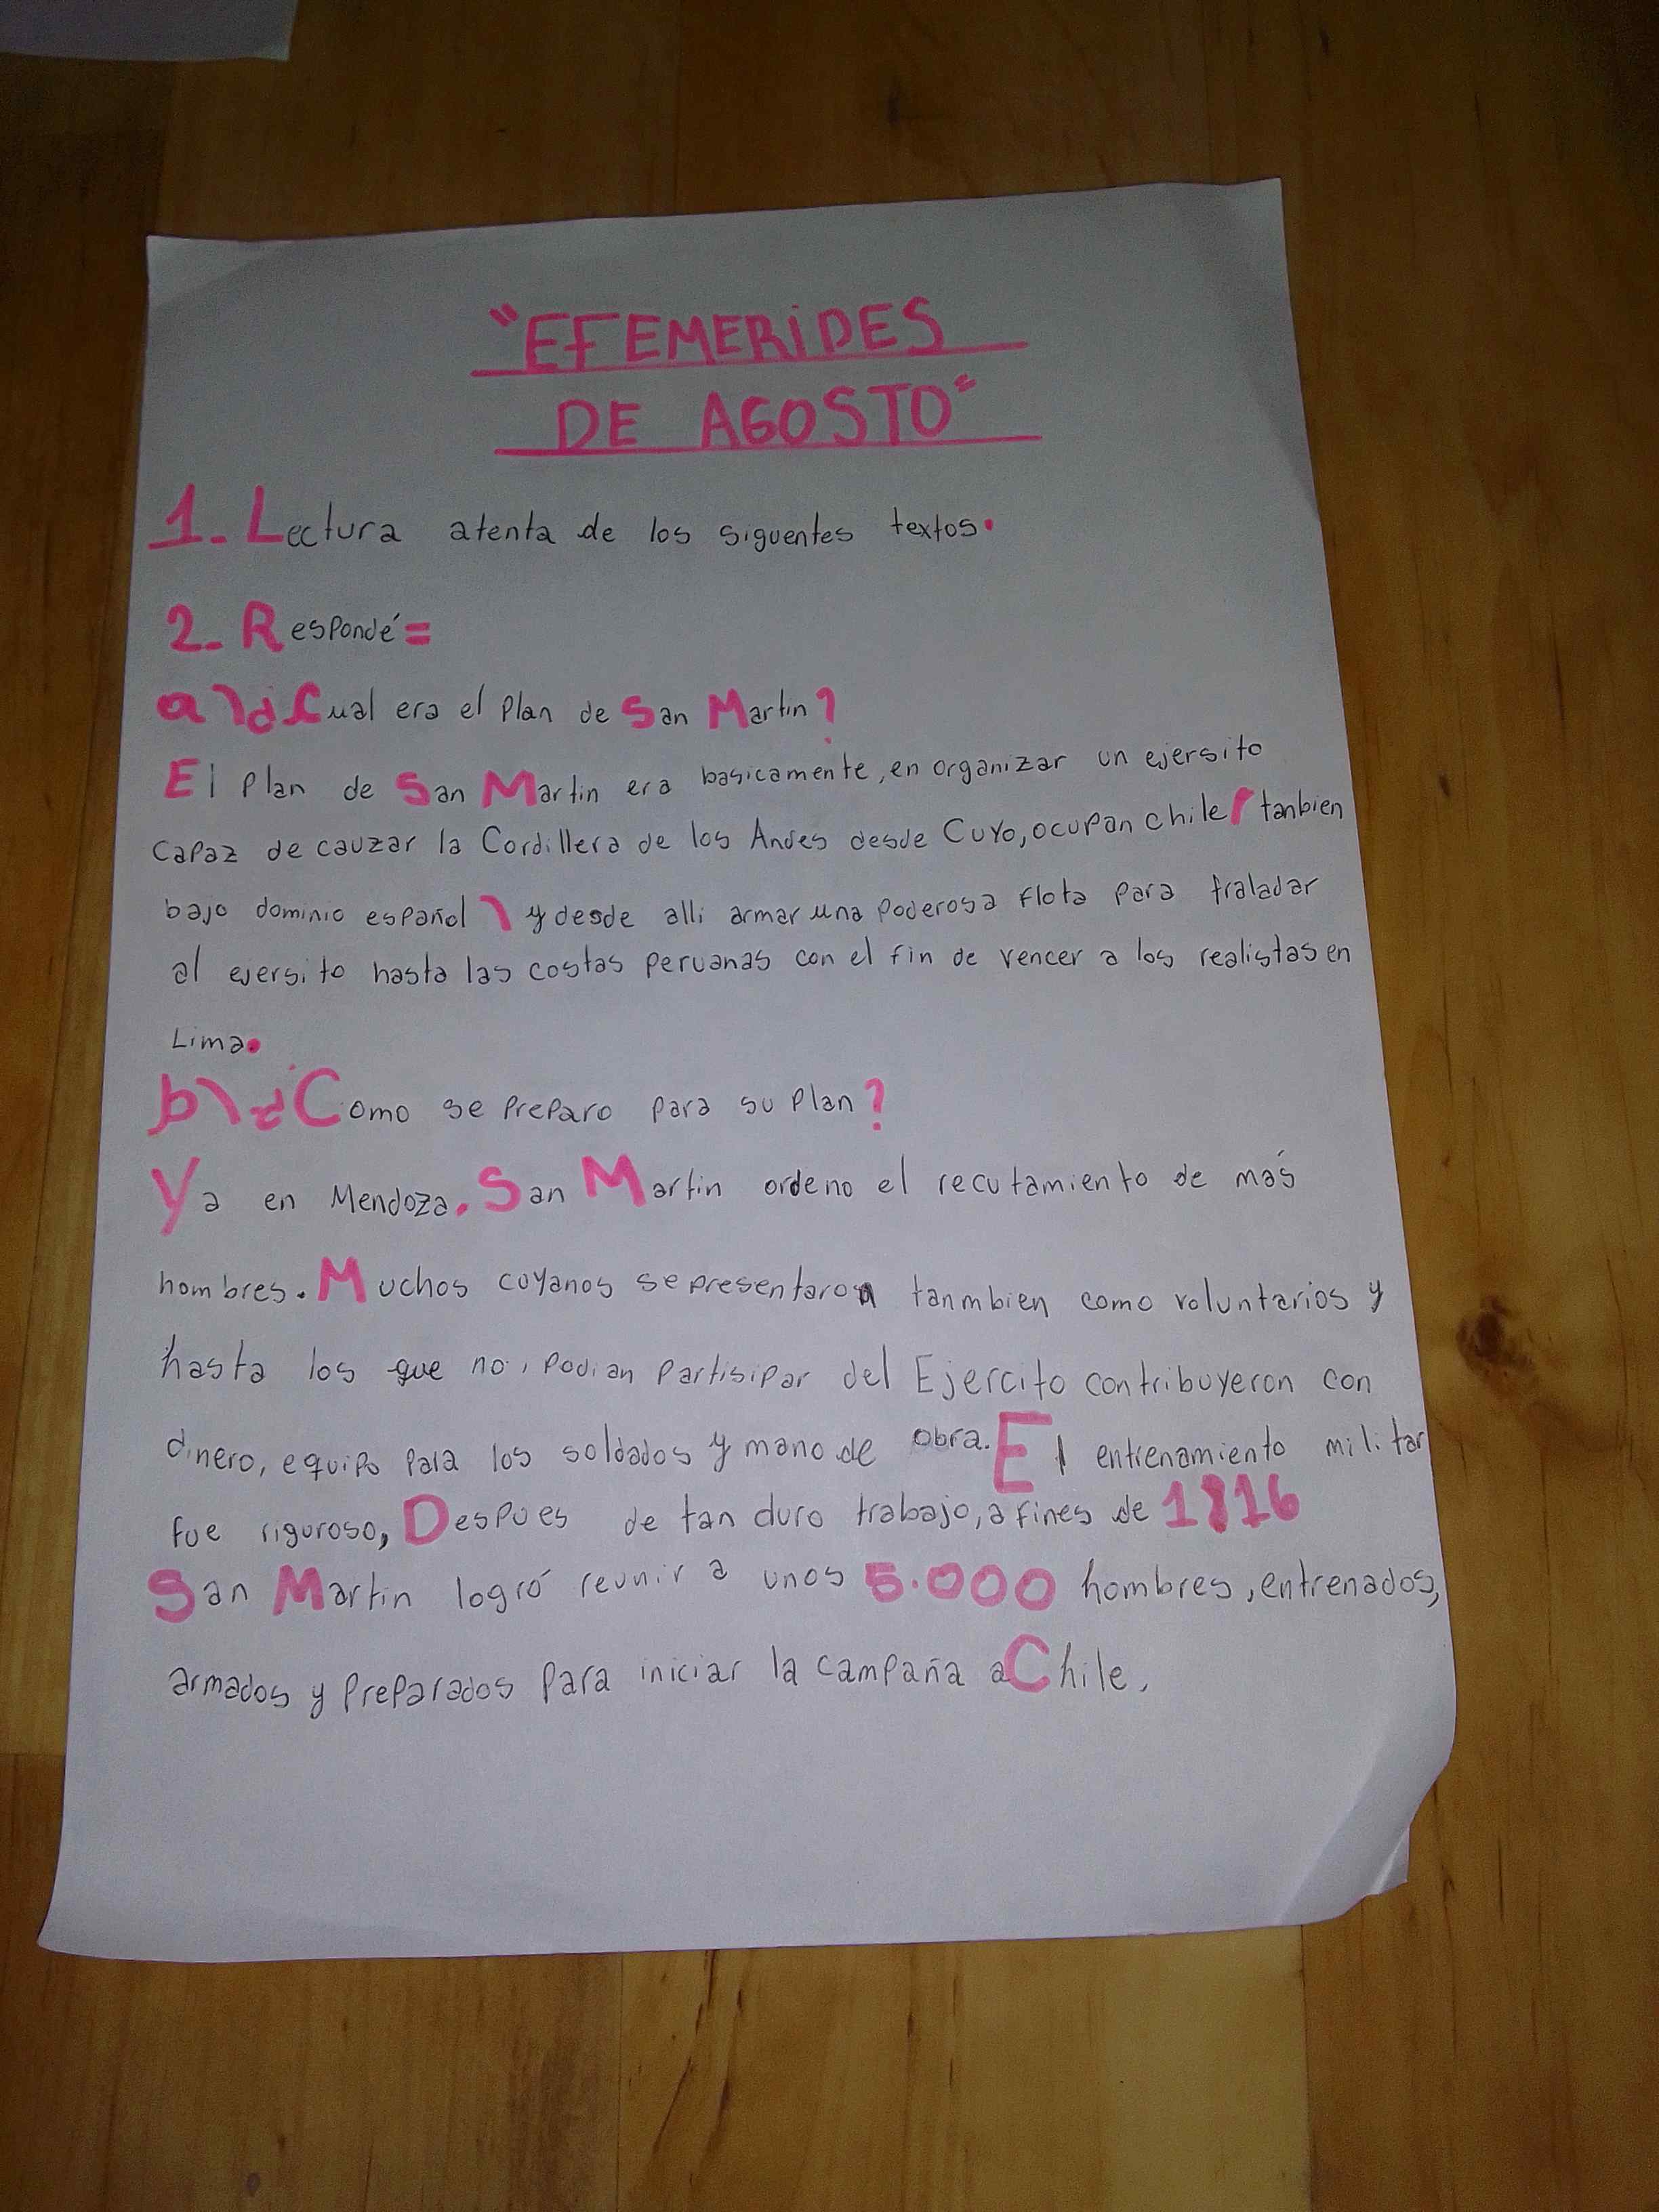 "EFEMERiDES
DE AGOSTO"
1. Lectura atenta de los siguentes textos.
2. Respondé=
a) ¿Cual era el Plan de San Martin?
El Plan de San Martin era basicamente, en organizar un ejersito
capaz de cauzar la Cordillera de los Andes desde Cuyo, ocupan chile ( tanbien
bajo dominio español ) y desde alli armar una Poderosa flota para traladar
al ejersito hasta las costas peruanas con el fin de vencer a los realistas en
Lima.
b) ¿Como se Preparo para su Plan?
Ya en Mendoza. San Martin ordeno el recutamiento de más
hombres. Muchos cuyanos se presentaron tanmbien como voluntarios y
hasta los que no, Podian Partisipar del Ejercito contribuyeron con
dinero, equipo Para los soldados y mano de obra. El entrenamiento militar
fue riguroso, Despues de tan duro trabajo, a fines de 1816
San Martin logró reunir a unos 5.000 hombres, entrenados,
armados y Preparados Para iniciar la campaña a Chile.